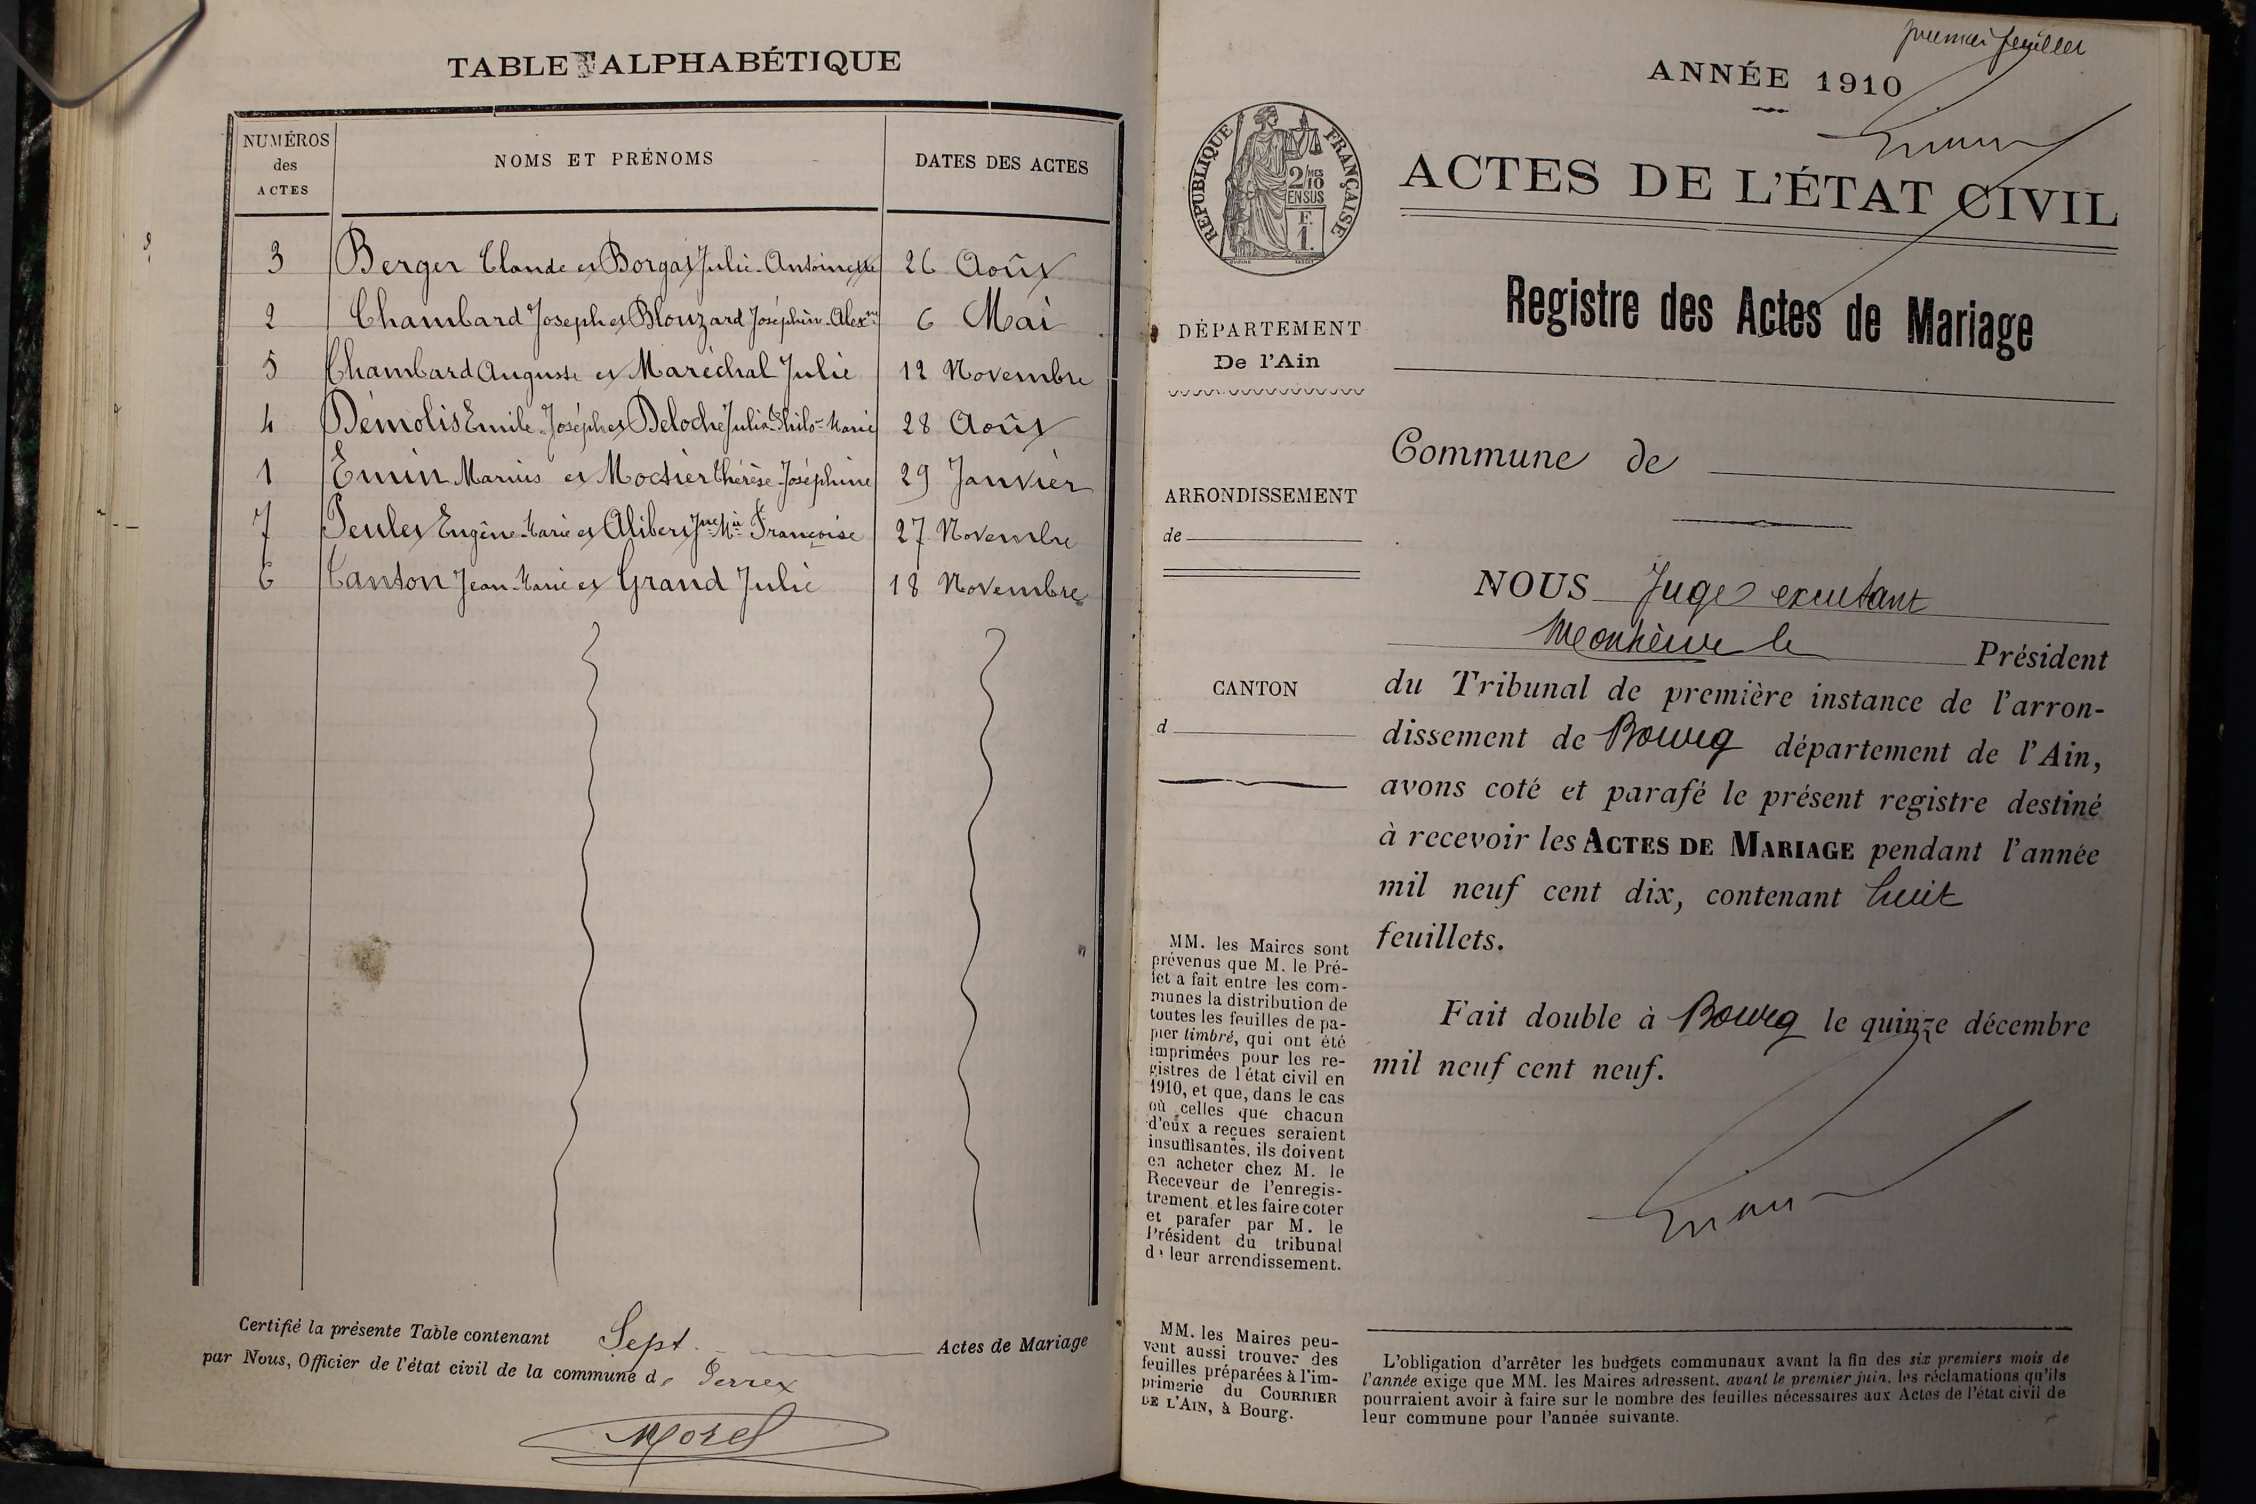 TABLE ALPHABÉTIQUE
NUMÉROS des ACTES
NOMS ET PRÉNOMS
DATES DES ACTES
3 Berger Claude et Borgat Julie-Antoinette 26 Août
2 Chambard Joseph et Blouzard Joséphin-Alexne 6 Mai
5 Chambard Auguste et Maréchal Julie 12 Novembre
4 Démolis Emile-Joseph et Deloche Julia Philo-Marie 28 Août
1 Emin Marius et Moctier Thérèse-Joséphine 29 Janvier
7 Peulet Eugène-Marie et Alibert Jne Mie Françoise 27 Novembre
6 Tanton Jean-Marie et Grand Julie 18 Novembre
Certifié la présente Table contenant Sept Actes de Mariage
par Nous, Officier de l'état civil de la commune de Perrex
Morel
premier feuillet
ANNÉE 1910
ACTES DE L'ÉTAT CIVIL
Registre des Actes de Mariage
REPUBLIQUE FRANÇAISE
2/10 MES
EN SUS
F.
1.
DÉPARTEMENT
De l'Ain
ARRONDISSEMENT
de
CANTON
d
MM. les Maires sont
prévenus que M. le Pré-
fet a fait entre les com-
munes la distribution de
toutes les feuilles de pa-
pier timbré, qui ont été
imprimées pour les re-
gistres de l'état civil en
1910, et que, dans le cas
où celles que chacun
d'eux a reçues seraient
insuffisantes, ils doivent
en acheter chez M. le
Receveur de l'enregis-
trement et les faire coter
et parafer par M. le
Président du tribunal
de leur arrondissement.
MM. les Maires peu-
vent aussi trouver des
feuilles préparées à l'im-
primerie du COURRIER
DE L'AIN, à Bourg.
Commune de
NOUS Juge excutant
Monsieur le Président
du Tribunal de première instance de l'arron-
dissement de Bourg département de l'Ain,
avons coté et parafé le présent registre destiné
à recevoir les ACTES DE MARIAGE pendant l'année
mil neuf cent dix, contenant huit
feuillets.
Fait double à Bourg le quinze décembre
mil neuf cent neuf.
L'obligation d'arrêter les budgets communaux avant la fin des six premiers mois de
l'année exige que MM. les Maires adressent, avant le premier juin, les réclamations qu'ils
pourraient avoir à faire sur le nombre des feuilles nécessaires aux Actes de l'état civil de
leur commune pour l'année suivante.